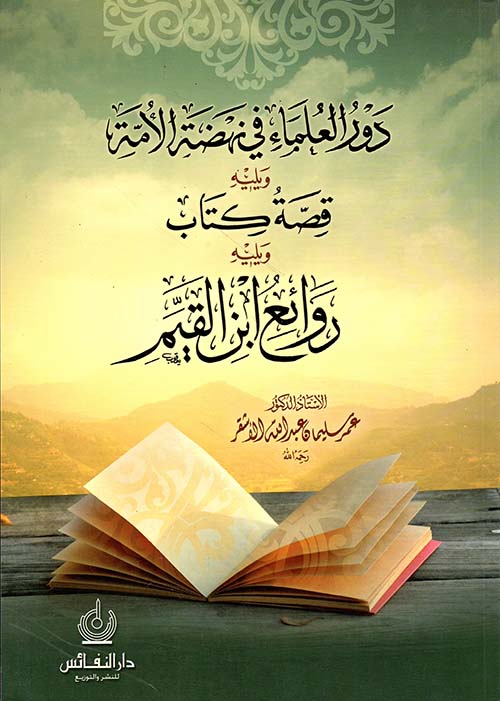 دَوْرُ العُلَمَاءِ فِي نَهْضَةِ الأُمَّةِ
وَيَلِيْهِ
قِصَّةُ كِتَابٍ
وَيَلِيْهِ
رَوَائِعُ ابْنِ القَيِّمِ
الأستاذ الدكتور
عمر سليمان عبد الله الأشقر
رحمه الله
دار النفائس
للنشر والتوزيع